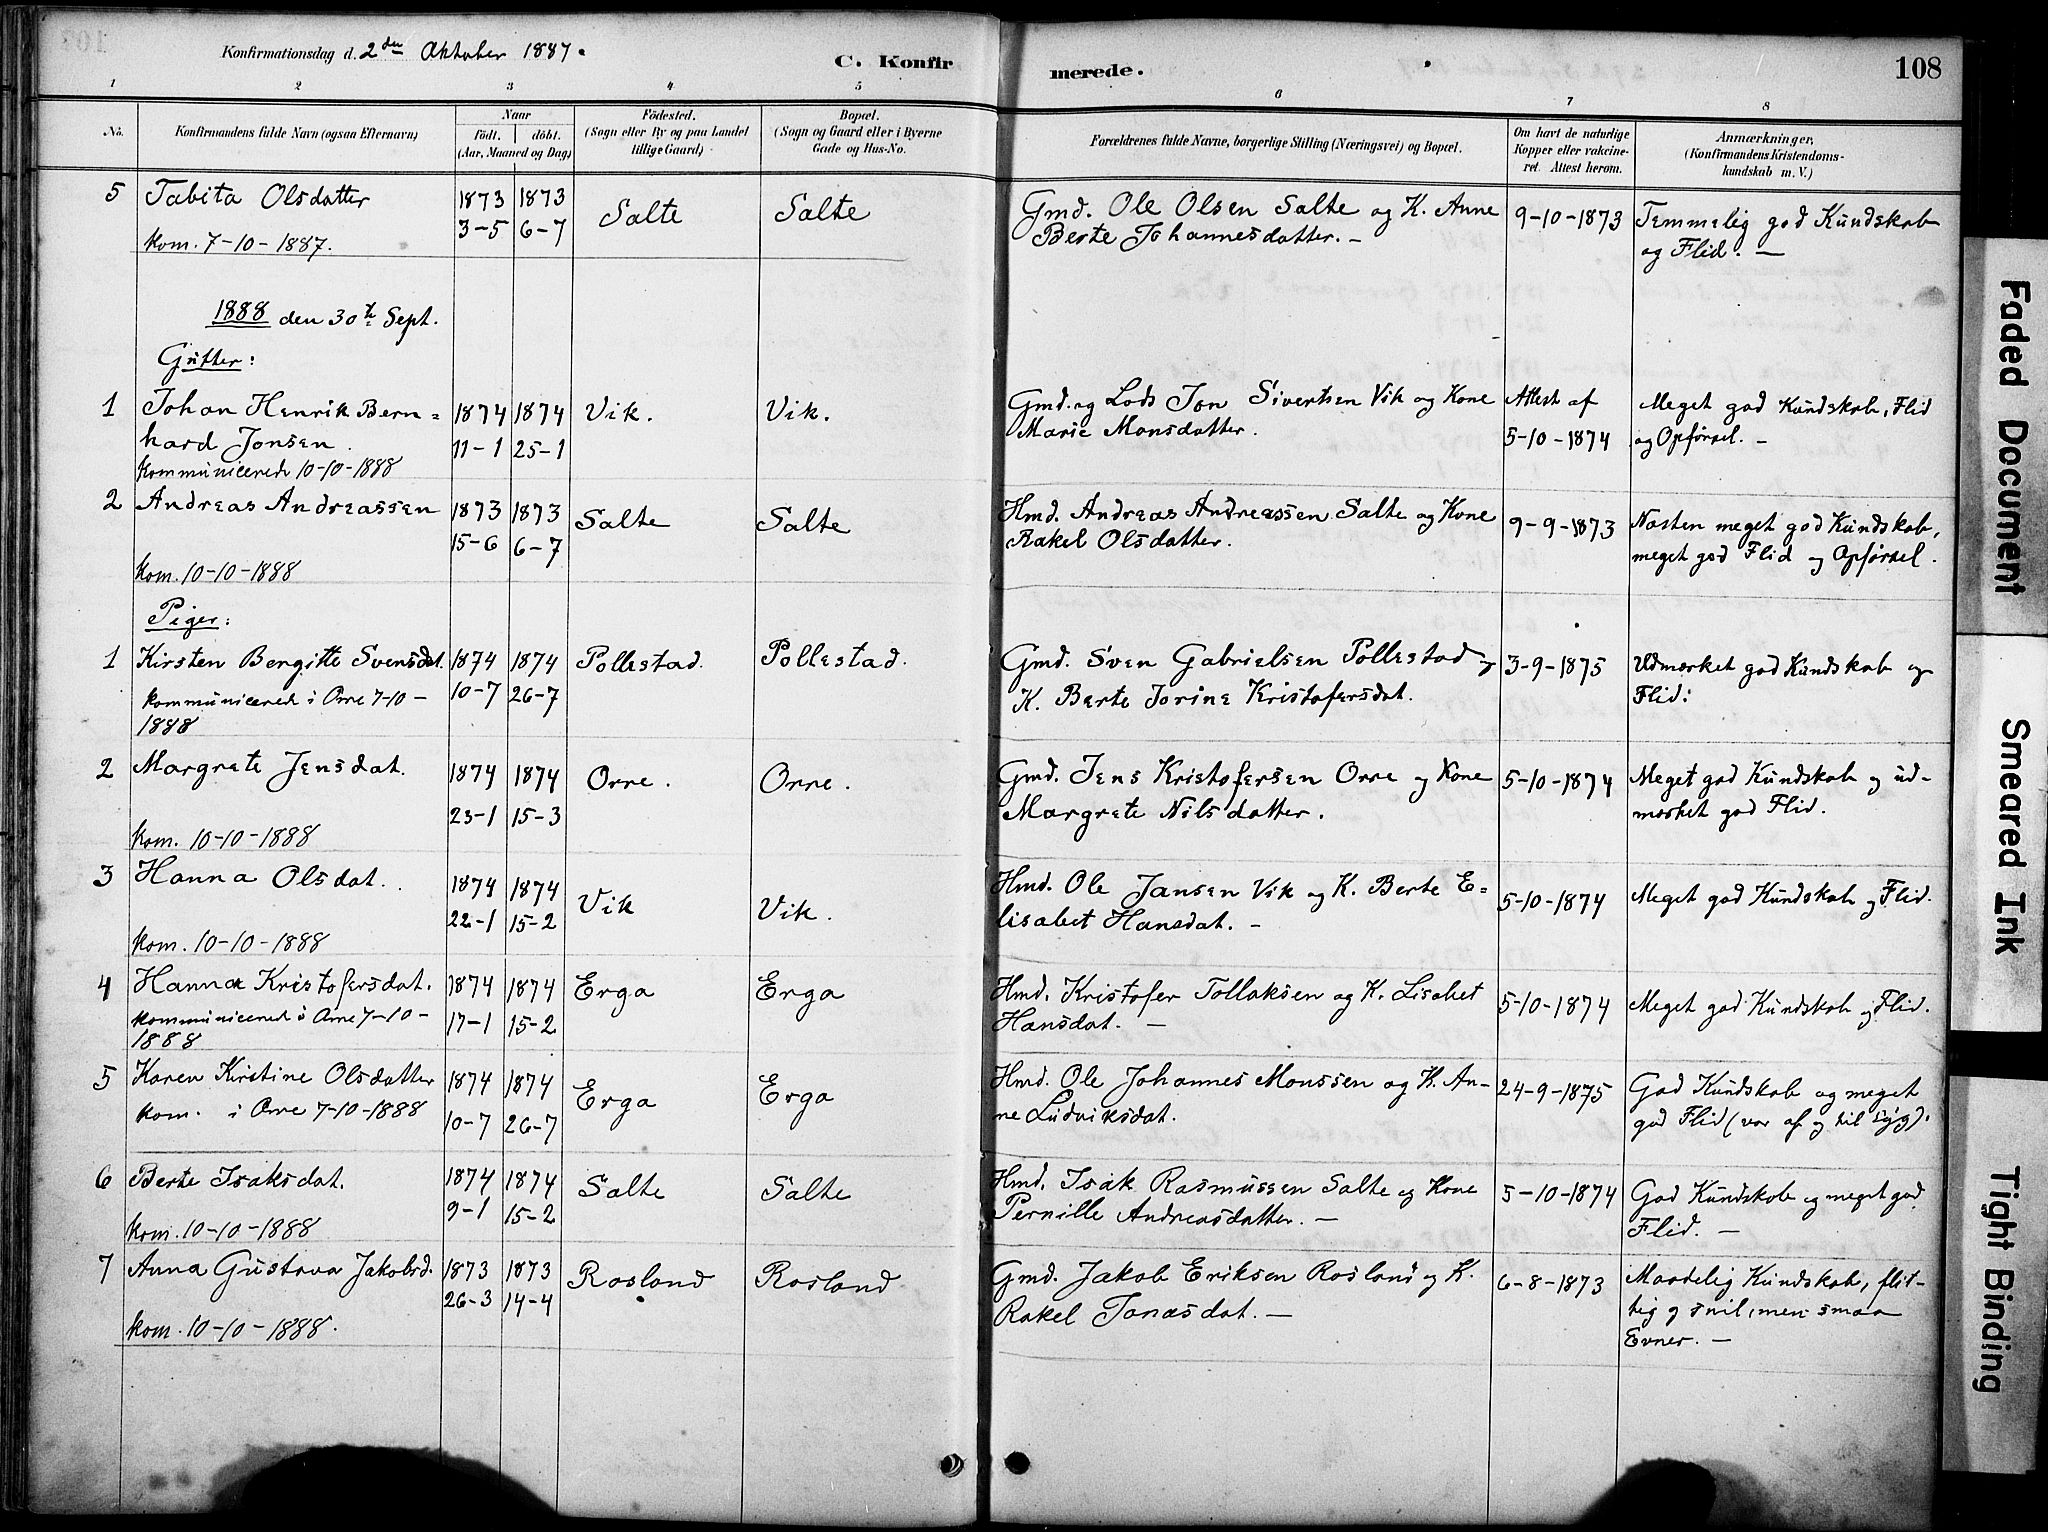 Konfirmationsdag d. 2den Oktober 1887.
C. Konfir
merede.
108
1 2 3 4 5 6 7 8
No.
Konfirmandens fulde Navn (ogsaa Efternavn)
Naar
födt. döbt.
(Aar, Maaned og Dag)
Födested.
(Sogn eller By og paa Landet
tillige Gaard)
Bopæl.
(Sogn og Gaard eller i Byerne
Gade og Hus-No.
Forældrenes fulde Navne, borgerlige Stilling (Næringsvei) og Bopæl.
Om havt de naturlige
Kopper eller vakcine-
ret. Attest herom.
Anmærkninger,
(Konfirmandens Kristendoms-
kundskab m. V.)
5 Tabita Olsdatter 1873 1873 Salte Salte Gmd. Ole Olsen Salte og K. Anne 9-10-1873 Temmelig god Kundskab
kom. 7-10-1887. 3-5 6-7 Berte Johannesdatter. - og Flid. -
1888 den 30te Sept.
Gutter:
1 Johan Henrik Bern= 1874 1874 Vik. Vik. Gmd. og Lods Jon Sivertsen Vik og Kone Attest af Meget god Kundskab, Flid
hard Jonsen. 11-1 25-1 Marie Monsdatter. 5-10-1874 og Opførsel. -
kommunicered 10-10-1888
2 Andreas Andreassen 1873 1873 Salte Salte Hmd. Andreas Andreassen Salte og Kone 9-9-1873 Næsten meget god Kundskab,
15-6 6-7 Rakel Olsdatter. meget god Flid og Opførsel.
kom. 10-10-1888
Piger:
1 Kirsten Bergitte Svensdat. 1874 1874 Pollestad. Pollestad. Gmd. Sven Gabrielsen Pollestad og 3-9-1875 Udmærket god Kundskab og
kommunicered i Orre 7-10- 10-7 26-7 K. Berte Jorine Kristofersdat. Flid:
1888
2 Margrete Jensdat. 1874 1874 Orre. Orre. Gmd. Jens Kristofersen Orre og Kone 5-10-1874 Meget god Kundskab og ud-
23-1 15-3 Margrete Nilsdatter. mærket god Flid.
kom. 10-10-1888
3 Hanna Olsdat. 1874 1874 Vik Vik. Hmd. Ole Jansen Vik og K. Berte E= 5-10-1874 Meget god Kundskab og Flid.
22-1 15-2 lisabet Hansdat. -
kom. 10-10-1888
4 Hanna Kristofersdat. 1874 1874 Erga Erga Hmd. Kristofer Tollaksen og K. Lisabet 5-10-1874 Meget god Kundskab og Flid.
kommunicered i Orre 7-10- 17-1 15-2 Hansdat. -
1888
5 Karen Kirstine Olsdatter 1874 1874 Erga Erga Hmd. Ole Johannes Monssen og K. An- 24-9-1875 God Kundskab og meget
kom. i Orre 7-10-1888 10-7 26-7 ne Ludviksdat. god Flid (var af og til syg).
6 Berte Isaksdat. 1874 1874 Salte Salte Hmd. Isak Rasmussen Salte og Kone 5-10-1874 God Kundskab og meget god
9-1 15-2 Pernille Andreasdatter. - Flid. -
kom. 10-10-1888
7 Anna Gustava Jakobsd. 1873 1873 Rosland Rosland Gmd. Jakob Eriksen Rosland og K. 6-8-1873 Maadelig Kundskab, flit-
26-3 14-4 Rakel Jonasdat. - tig og snil, men smaa
kom. 10-10-1888. Evner. -
Faded Document
Smeared Ink
Tight Binding